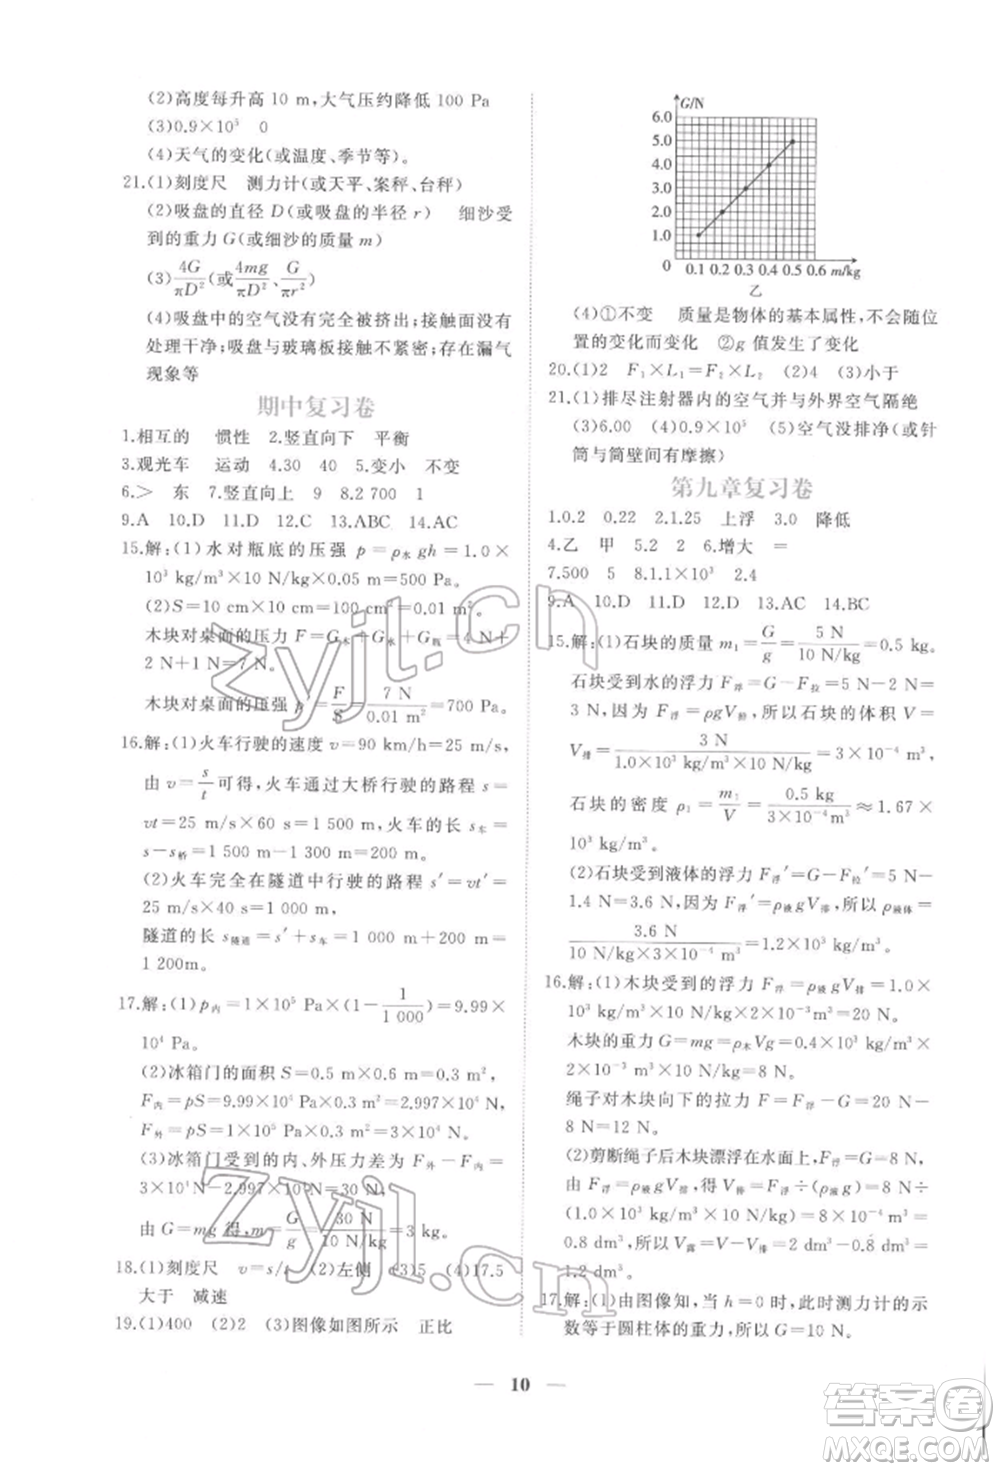 (2)高度每升高 10 m,大气压约降低 100 Pa
(3)0.9×10⁵　0
(4)天气的变化(或温度、季节等)。
21.(1)刻度尺　测力计(或天平、案秤、台秤)
(2)吸盘的直径 D(或吸盘的半径 r)　细沙受
到的重力 G(或细沙的质量 m)
(3)4G/πD²(或4mg/πD²、G/πr²)
(4)吸盘中的空气没有完全被挤出;接触面没有
处理干净;吸盘与玻璃板接触不紧密;存在漏气
现象等
期中复习卷
1.相互的　惯性　2.竖直向下　平衡
3.观光车　运动　4.30　40　5.变小　不变
6.＞　东　7.竖直向上　9　8.2 700　1
9.A　10.D　11.D　12.C　13.ABC　14.AC
15.解:(1)水对瓶底的压强 p=ρ水 gh=1.0×
10³ kg/m³×10 N/kg×0.05 m=500 Pa。
(2)S=10 cm×10 cm=100 cm²=0.01 m²。
木块对桌面的压力 F=G水+G木+G瓶=4 N+
2 N+1 N=7 N。
木块对桌面的压强 p=F/S=7 N/0.01 m²=700 Pa。
16.解:(1)火车行驶的速度 v=90 km/h=25 m/s,
由 v=s/t可得,火车通过大桥行驶的路程 s=
vt=25 m/s×60 s=1 500 m,火车的长 s车=
s-s桥=1 500 m-1 300 m=200 m。
(2)火车完全在隧道中行驶的路程 s′=vt′=
25 m/s×40 s=1 000 m,
隧道的长 s隧道=s′+s车=1 000 m+200 m=
1 200 m。
17.解:(1)p内=1×10⁵ Pa×(1-1/1 000)=9.99×
10⁴ Pa。
(2)冰箱门的面积 S=0.5 m×0.6 m=0.3 m²,
F内=pS=9.99×10⁴ Pa×0.3 m²=2.997×10⁴ N,
F外=pS=1×10⁵ Pa×0.3 m²=3×10⁴ N。
(3)冰箱门受到的内、外压力差为 F外-F内=
3×10⁴ N-2.997×10⁴ N=30 N,
由 G=mg 得,m=G/g=30 N/10 N/kg=3 kg。
18.(1)刻度尺　v=s/t　(2)左侧　(3)5　(4)17.5
大于　减速
19.(1)400　(2)2　(3)图像如图所示　正比
G/N
6.0
5.0
4.0
3.0
2.0
1.0
0　0.1 0.2 0.3 0.4 0.5 0.6 m/kg
乙
(4)①不变　质量是物体的基本属性,不会随位
置的变化而变化　②g 值发生了变化
20.(1)2　F₁×L₁=F₂×L₂　(2)4　(3)小于
21.(1)排尽注射器内的空气并与外界空气隔绝
(3)6.00　(4)0.9×10⁵　(5)空气没排净(或针
筒与筒壁间有摩擦)
第九章复习卷
1.0.2　0.22　2.1.25　上浮　3.0　降低
4.乙　甲　5.2　2　6.增大　=
7.500　5　8.1.1×10³　2.4
9.A　10.D　11.D　12.D　13.AC　14.BC
15.解:(1)石块的质量 m₁=G/g=5 N/10 N/kg=0.5 kg。
石块受到水的浮力 F浮=G-F拉=5 N-2 N=
3 N,因为 F浮=ρgV排,所以石块的体积 V=
V排=3 N/1.0×10³ kg/m³×10 N/kg=3×10⁻⁴ m³,
石块的密度 ρ₁=m₁/V=0.5 kg/3×10⁻⁴ m³≈1.67×
10³ kg/m³。
(2)石块受到液体的浮力 F浮′=G-F拉′=5 N-
1.4 N=3.6 N。因为 F浮′=ρ液gV排,所以 ρ液体=
3.6 N/10 N/kg×3×10⁻⁴ m³=1.2×10³ kg/m³。
16.解:(1)木块受到的浮力 F浮=ρ液gV排=1.0×
10³ kg/m³×10 N/kg×2×10⁻³ m³=20 N。
木块的重力 G=mg=ρ木Vg=0.4×10³ kg/m³×
2×10⁻³ m³×10 N/kg=8 N。
绳子对木块向下的拉力 F=F浮-G=20 N-
8 N=12 N。
(2)剪断绳子后木块漂浮在水面上,F浮=G=
8 N,由 F浮=ρ液gV排,得 V排=F浮÷ρ液g=8 N÷
(1.0×10³ kg/m³×10 N/kg)=8×10⁻⁴ m³=
0.8 dm³,所以 V露=V-V排=2 dm³-0.8 dm³=
1.2 dm³。
17.解:(1)由图像知,当 h=0 时,此时测力计的示
数等于圆柱体的重力,所以 G=10 N。
— 10 —
zyjl.cn
zyjl.cn
答案圈
MXQE.COM